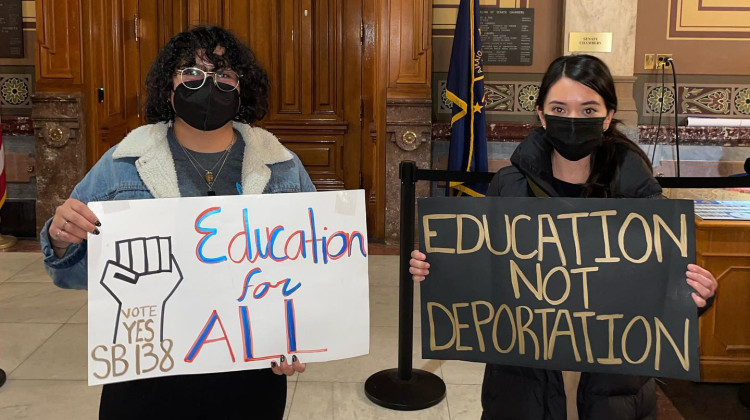 SENATE
CHAMBERS
Education
for
ALL
VOTE
YES
SB 138
EDUCATION
NOT
DEPORTATION